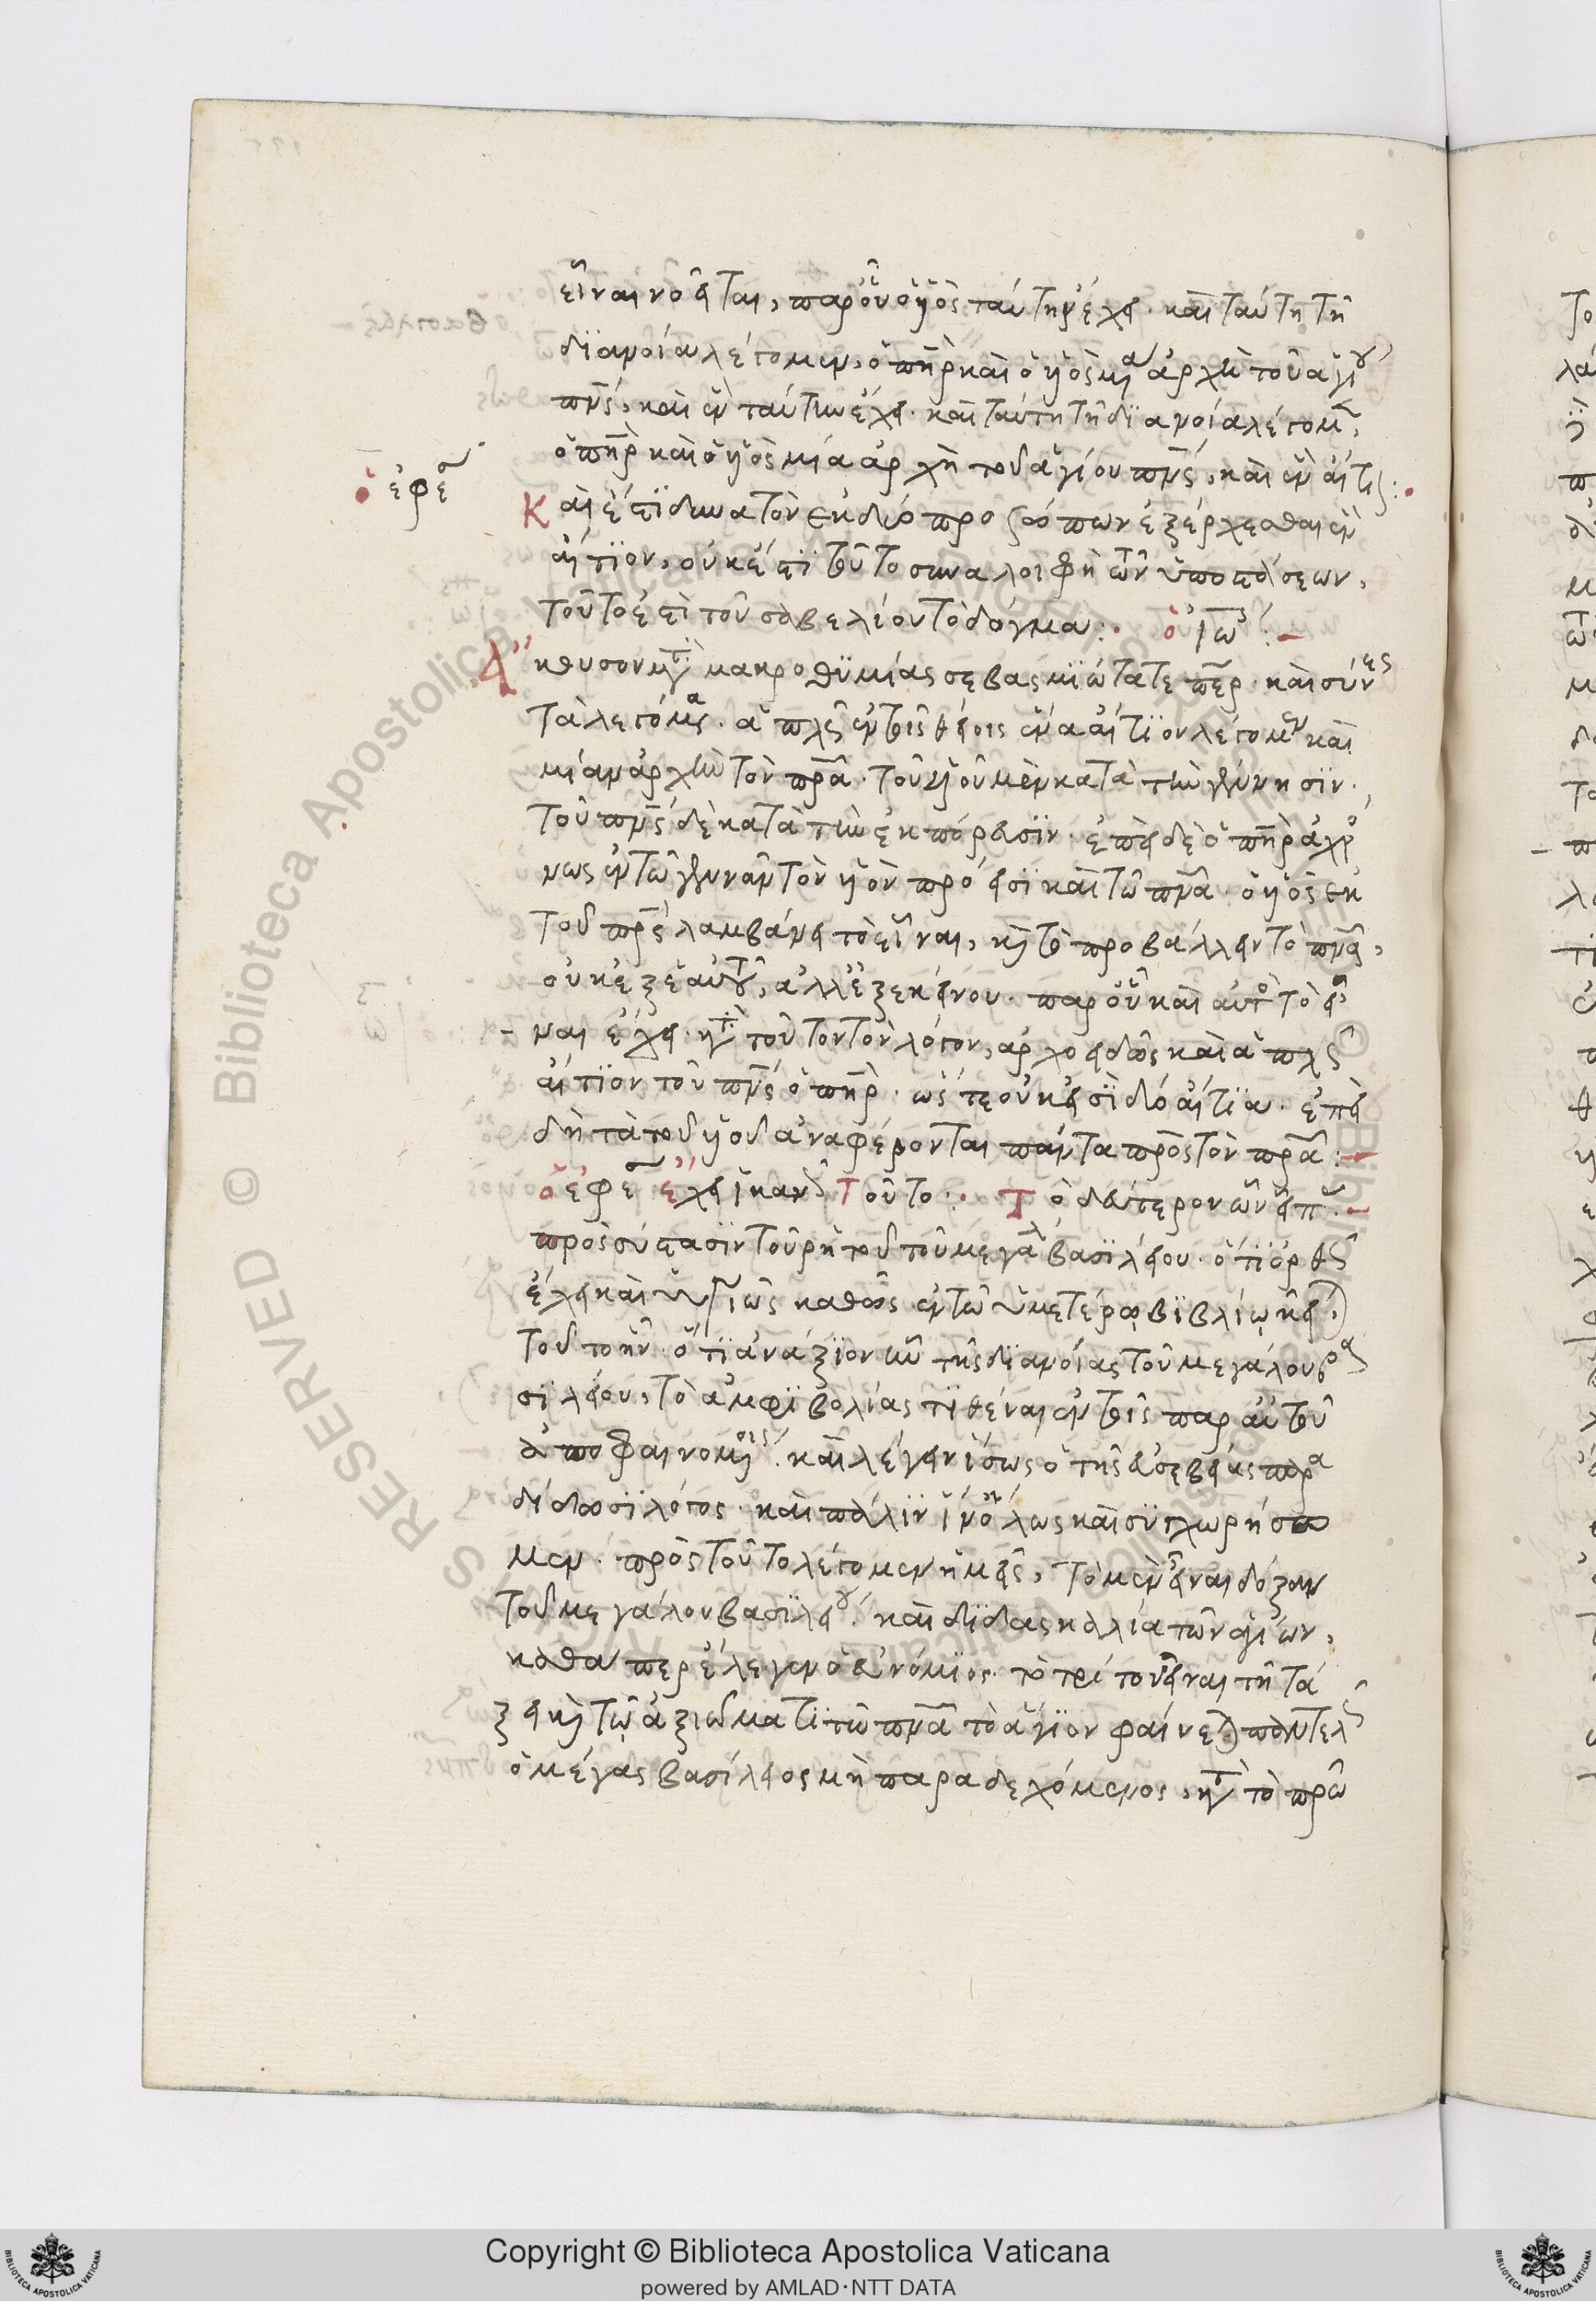 εἶναι νοεῖται, παρ οὗ ὁ υἱὸς ταύτην ἔχει· καὶ ταύτη τῆ
διανοία λέγομεν, ὁ πηρ καὶ ὁ υἱὸς μία ἀρχὴ τοῦ ἁγίου
πνς, καὶ ἓν ταύτην ἔχει· καὶ ταύτη τῆ διανοία λέγομεν,
ὁ πηρ καὶ ὁ υἱὸς μία ἀρχὴ τοῦ ἁγίου πνς, καὶ ἓν αἴτι:
ὁ ἐφε
Καὶ ἔστι δυνατὸν ἐκ δύο προσώπων ἐξέρχεσθαι ἓν
αἴτιον, οὐκ ἔστι τοῦτο συναλοιφὴ τῶν ὑποστάσεων,
τοῦτο ἐστὶ τοῦ σαβελίου τὸ δόγμα: ὁ ἰω
κουσον μετὰ μακροθυμίας σεβασμιώτατε περ· καὶ σύνες
τὰ λεγόμενα· ἁπλῶς ἐν τοῖς θείοις ἕνα αἴτιον λέγομεν καὶ
μίαν ἀρχὴν τὸν πρα· τοῦ υἱοῦ μὲν κατὰ τὴν γέννησιν·
τοῦ πνς δὲ κατὰ τὴν ἐκπόρευσιν· ἐπεὶ δὲ ὁ πηρ ἀχρό
νως ἐν τῶ γεννᾶν τὸν υἱὸν πρόεισι καὶ τῶ πνα· ὁ υἱὸς ἐκ
τοῦ πρς λαμβάνει τὸ εἶναι, καὶ τὸ προβάλλειν τὸ πνα,
οὐκ ἐξ ἑαυτοῦ, ἀλλ ἐξ ἐκείνου· παρ οὗ καὶ αὐτὸ τὸ εἶ
ναι ἔχει· κατὰ τοῦτον τὸν λόγον, ἀρχοειδῶς καὶ ἁπλῶς
αἴτιον τοῦ πνς ὁ πηρ· ὥστε οὐκ εἰσὶ δύο αἴτια· ἐπει
δὴ τὰ τοῦ υἱοῦ ἀναφέρονται πάντα πρὸς τὸν πρα:
ὁ ἐφε ἔχει ἱκανῶς τοῦτο: Τὸ δεύτερον ὧν εἶπον
πρὸς σύστασιν τοῦ ῥητοῦ τοῦ μεγάλου βασιλείου· ὅτι ὀρθῶς
ἔχει καὶ ὑγιῶς καθὼς ἐν τῶ ὑμετέρω βιβλίω κεῖται
τοῦτο ἦν· ὅτι ἀνάξιον ἦν τῆς διανοίας τοῦ μεγάλου βα
σιλείου, τὸ ἀμφιβολίας τιθέναι ἐν τοῖς παρ αὐτοῦ
ἀποφαινομένοις· καὶ λέγειν ἴσως ὁ τῆς εὐσεβείας παρα
δίδωσι λόγος· καὶ πάλιν ἵν ὅλως καὶ συγχωρήσω
μεν· πρὸς τοῦτο λέγομεν ἡμεῖς, τὸ μὲν εἶναι δόξαν
τοῦ μεγάλου βασιλείου· καὶ διδασκαλία τῶν ἁγίων,
καθάπερ ἔλεγεν ὁ εὐνόμιος· τὸ τρίτον εἶναι τῆ τά
ξει καὶ τῶ ἀξιώματι τῶ πνα τὸ ἅγιον φαίνεται παντελῶς
ὁ μέγας βασίλειος μὴ παραδεχόμενος, κατὰ τὸ πρῶ
Copyright © Biblioteca Apostolica Vaticana
powered by AMLAD·NTT DATA